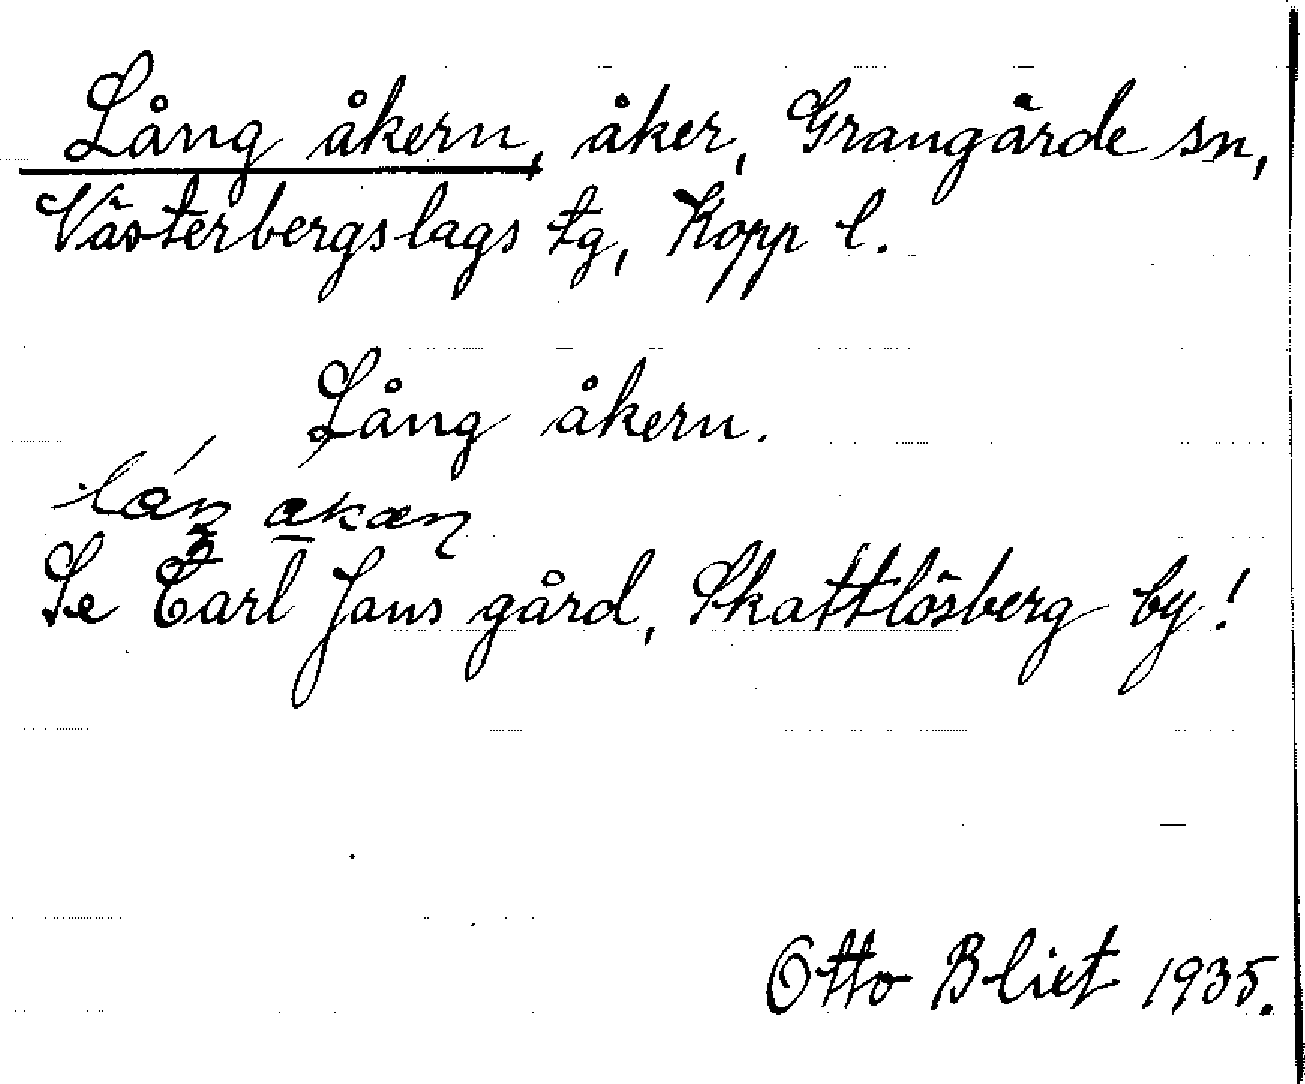 Lång åkern, åker, Grangärde sn,
Västerbergslags tg, Kopp l.
Lång åkern.
Se Carl Jans gård, Skattlösberg by!
Otto Blixt 1935.